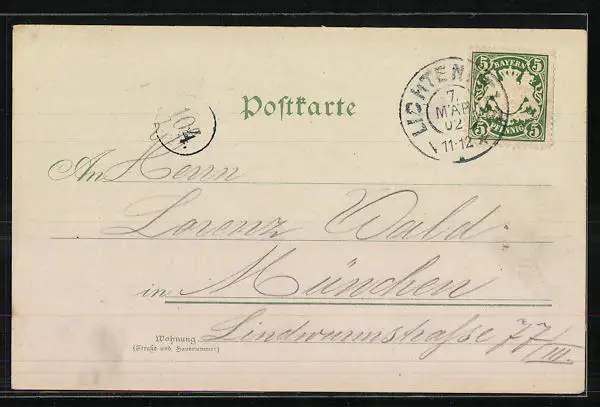 Postkarte
5 BAYERN 5
5 PFENNIG 5
LICHTEN
7
MAR
02
11-12
104
An Herrn
Lorenz Wald
in München
Lindwurmstraße 77/III.
Wohnung
(Straße und Hausnummer)